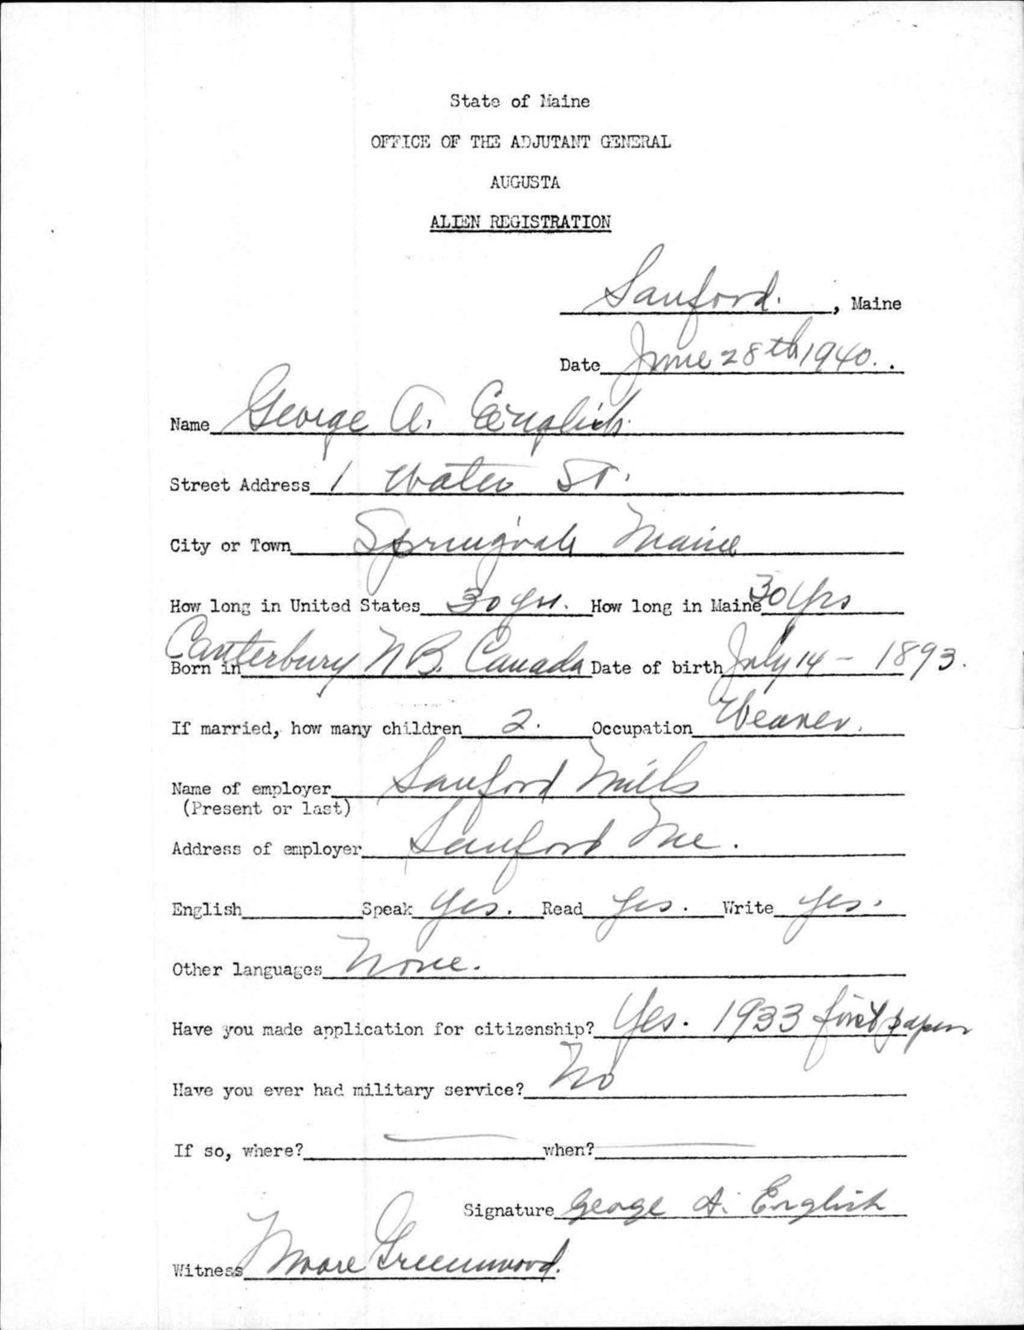 State of Maine
OFFICE OF THE ADJUTANT GENERAL
AUGUSTA
ALIEN REGISTRATION
Sanford. , Maine
Date June 28th 1940..
Name George A. English.
Street Address 1 Water St.
City or Town Springvale Maine
How long in United States 30 yrs. How long in Maine 30 Yrs
Born in Canterbury N B. Canada Date of birth July 14 - 1893.
If married, how many children 2. Occupation Weaver.
Name of employer Sanford Mills
(Present or last)
Address of employer Sanford Me.
English Speak Yes. Read Yes. Write Yes.
Other languages None.
Have you made application for citizenship? Yes. 1933 first papers
Have you ever had military service? No
If so, where? — when? —
Signature George A. English
Witness Moore Greenwood.